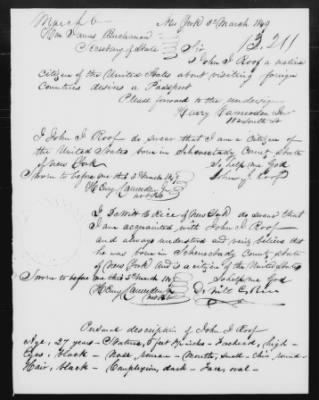 March 6
New York 5th March 1849
Hon James Buchanan
Secretary of State
Sir
13,211
I John I Roof a native
Citizen of the United States about visiting foreign
Countries desires a Passport
Please forward to the undersign
Henry
I John I Roof do swear that I am a Citizen of
the United States born in Schenectady County State
of New York So help me God
Sworn to before me this 5 March 1849 John I Roof
I DeWitt C Rice of New York do swear that
I am acquainted with John I Roof
and always understood and verily believes that
he was born in Schenectady County State
of New York and is a Citizen of the United States
Sworn to before me this 5th March 1849 So help me God
De Witt C. Rice
Personal description of John I Roof
Age, 27 years - Stature, 5 feet inches - Forehead, high -
Eyes, black - Nose roman - Mouth, small - chin round -
Hair, black - Complexion, dark - Face, oval -